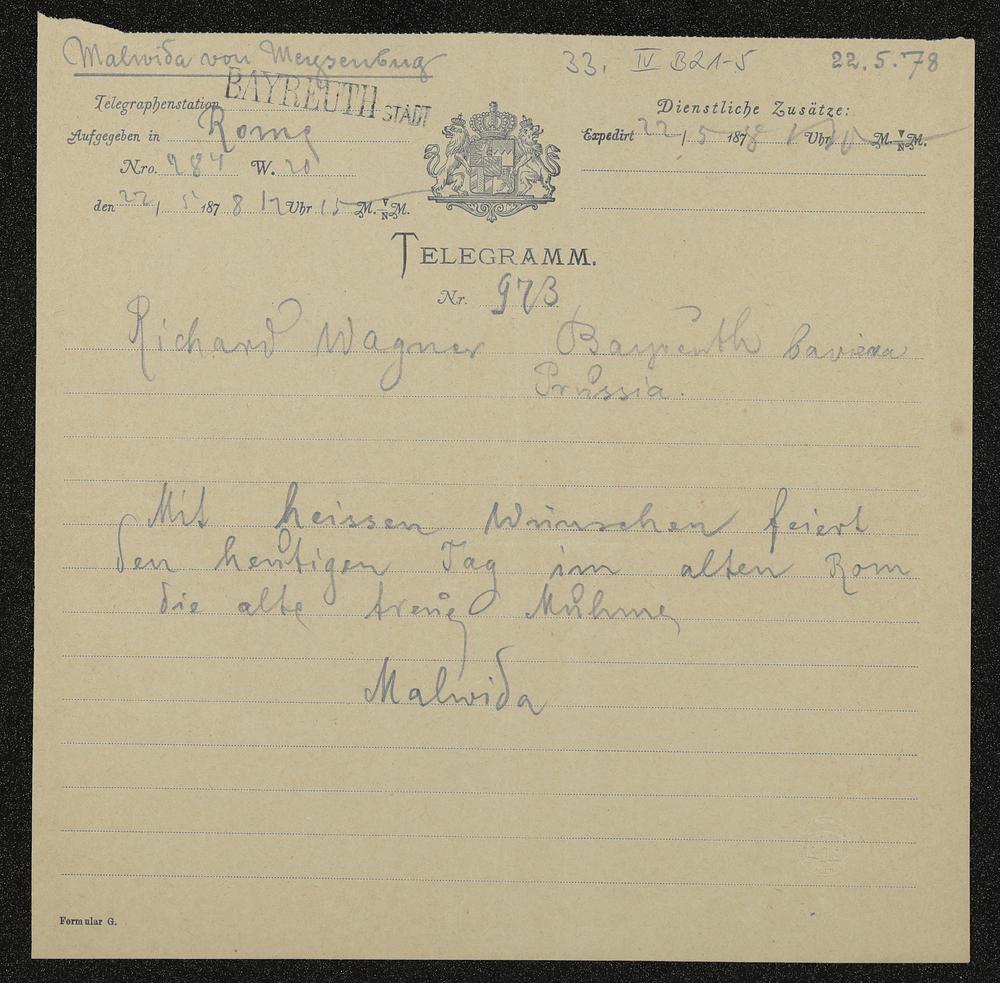 Malwida von Meysenbug 33. IV B21-5 22.5.78
Telegraphenstation BAYREUTH STADT
Dienstliche Zusätze:
Aufgegeben in Rome
Expedirt 22/5 1878 1 Uhr M. V/N M.
Nro. 284 W. 20
den 22/5 1878 12 Uhr 15 M. V/N M.
TELEGRAMM.
Nr. 973
Richard Wagner Bayreuth baviera
Prussia.
Mit heissen Wünschen feiert
den heutigen Tag im alten Rom
die alte treue Muhme
Malwida
Formular G.